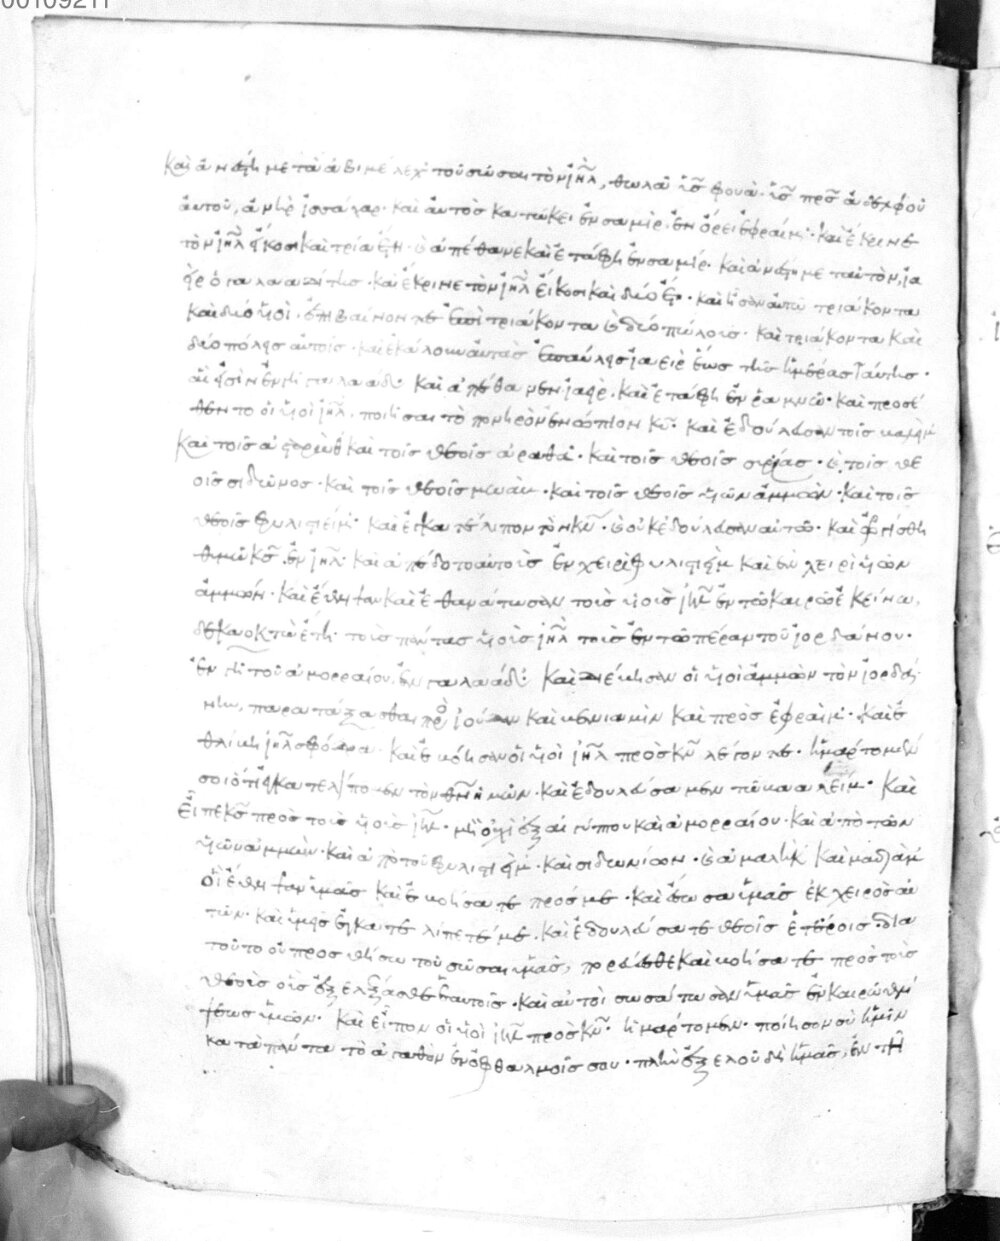 00109211
Καὶ ἀνέστη μετὰ ἀβιμέλεχ τοῦ σῶσαι τὸν ἰηλ, θωλὰ υἱσ φουὰ· υἱσ πρσ ἀδελφοῦ
αὐτοῦ, ἀνὴρ ἰσσάχαρ· καὶ αὐτὸσ κατώκει ἐν σαμὶρ· ἐν ὄρει ἐφραίμ· καὶ ἔκρινε
τὸν ἰηλ εἴκοσι καὶ τρία ἔτη· καὶ ἀπέθανε καὶ ἐτάφη ἐν σαμίρ· καὶ ἀνέστη μετ αὐτὸν, ἰα
ὴρ ὁ γαλααδίτησ· καὶ ἔκρινε τὸν ἰηλ εἴκοσι καὶ δύο ἔτη· καὶ ἦσαν αὐτῶ τριάκοντα
καὶ δύο υἱοὶ· ἐπιβαίνοντεσ ἐπὶ τριάκοντα καὶ δύο πώλουσ· καὶ τριάκοντα καὶ
δύο πόλεισ αὐτοῖσ· καὶ ἐκάλουν αὐτὰσ ἐπαύλεισ ἰαεὶρ ἕωσ τῆσ ἡμέρασ ταύτησ·
αἵ εἰσὶν ἐν γῆ γαλαάδ· καὶ ἀπέθανεν ἰαὴρ, καὶ ἐτάφη ἐν ῥαμνὼ· καὶ προσέ
θεντο οἱ υἱοὶ ἰηλ, ποιῆσαι τὸ πονηρὸν ἐνώπιον κυ· καὶ ἐδούλευσαν τοῖσ βααλὴμ
καὶ τοῖσ ἀσταρὼθ καὶ τοῖσ θεοῖσ ἀραθὰ· καὶ τοῖσ θεοῖσ συρίασ· καὶ τοῖσ θε
οῖσ σιδῶνοσ· καὶ τοῖσ θεοῖσ μωὰβ· καὶ τοῖσ θεοῖσ υἱῶν ἀμμὼν· καὶ τοῖσ
θεοῖσ φυλιστιείμ· καὶ ἐγκατέλιπον τὸν κν· καὶ οὐκ ἐδούλευσαν αὐτῶ· καὶ ὠργίσθη
θυμῶ κσ ἐν ἰηλ· καὶ ἀπέδοτο αὐτοὺσ ἐν χειρὶ φυλιστιεὶμ καὶ ἐν χειρὶ υἱῶν
ἀμμών· καὶ ἔθλιψαν καὶ ἐθανάτωσαν τοὺσ υἱοὺσ ἰηλ ἐν τῶ καιρῶ ἐκείνω,
δέκα ὀκτὼ ἔτη· τοὺσ πάντασ υἱοὺσ ἰηλ τοὺσ ἐν τῶ πέραν τοῦ ἰορδάνου·
ἐν γῆ τοῦ ἀμορραίου, ἐν γαλαάδ· Καὶ διέβησαν οἱ υἱοὶ ἀμμὼν τὸν ἰορδά
νην, παρατάξασθαι πρὸσ ἰούδαν καὶ βενιαμὶν καὶ πρὸσ ἐφραὶμ· καὶ ἐ
θλίβη ἰηλ σφόδρα· καὶ ἐβόησαν οἱ υἱοὶ ἰηλ πρὸσ κν λέγοντεσ· ἡμάρτομέν
σοι ὅτι ἐγκατελίπομεν τὸν θν ἡμῶν· καὶ ἐδουλεύσαμεν τῶ βααλείμ· Καὶ
εἶπε κσ πρὸσ τοὺσ υἱοὺσ ἰηλ· μὴ οὐχὶ ἐξ αἰγύπτου καὶ ἀμορραίου· καὶ ἀπὸ τῶν
υἱῶν ἀμμὼν· καὶ ἀπὸ τοῦ φυλιστιεὶμ· καὶ σιδωνίων· καὶ ἀμαλὴκ καὶ μαδιὰμ
οἳ ἔθλιψαν ὑμᾶσ καὶ ἐβοήσατε πρόσ με· καὶ ἔσωσα ὑμᾶσ ἐκ χειρὸσ αὐ
τῶν· καὶ ὑμεῖσ ἐγκατελίπετέ με· καὶ ἐδουλεύσατε θεοῖσ ἑτέροισ· δια
τοῦτο οὐ προσθήσω τοῦ σῶσαι ὑμᾶσ, πορεύεσθε καὶ βοήσατε πρὸσ τοὺσ
θεοὺσ οὓσ ἐξελέξασθε ἑαυτοῖσ· καὶ αὐτοὶ σωσάτωσαν ὑμᾶσ ἐν καιρῶ θλί
ψεωσ ὑμῶν· καὶ εἶπον οἱ υἱοὶ ἰηλ πρὸσ κν· ἡμάρτομεν· ποίησον σὺ ἡμῖν
κατὰ πάντα τὸ ἀγαθὸν ἐν ὀφθαλμοῖσ σου· πλὴν ἐξελοῦ δὴ ἡμᾶσ, ἐν τῆ